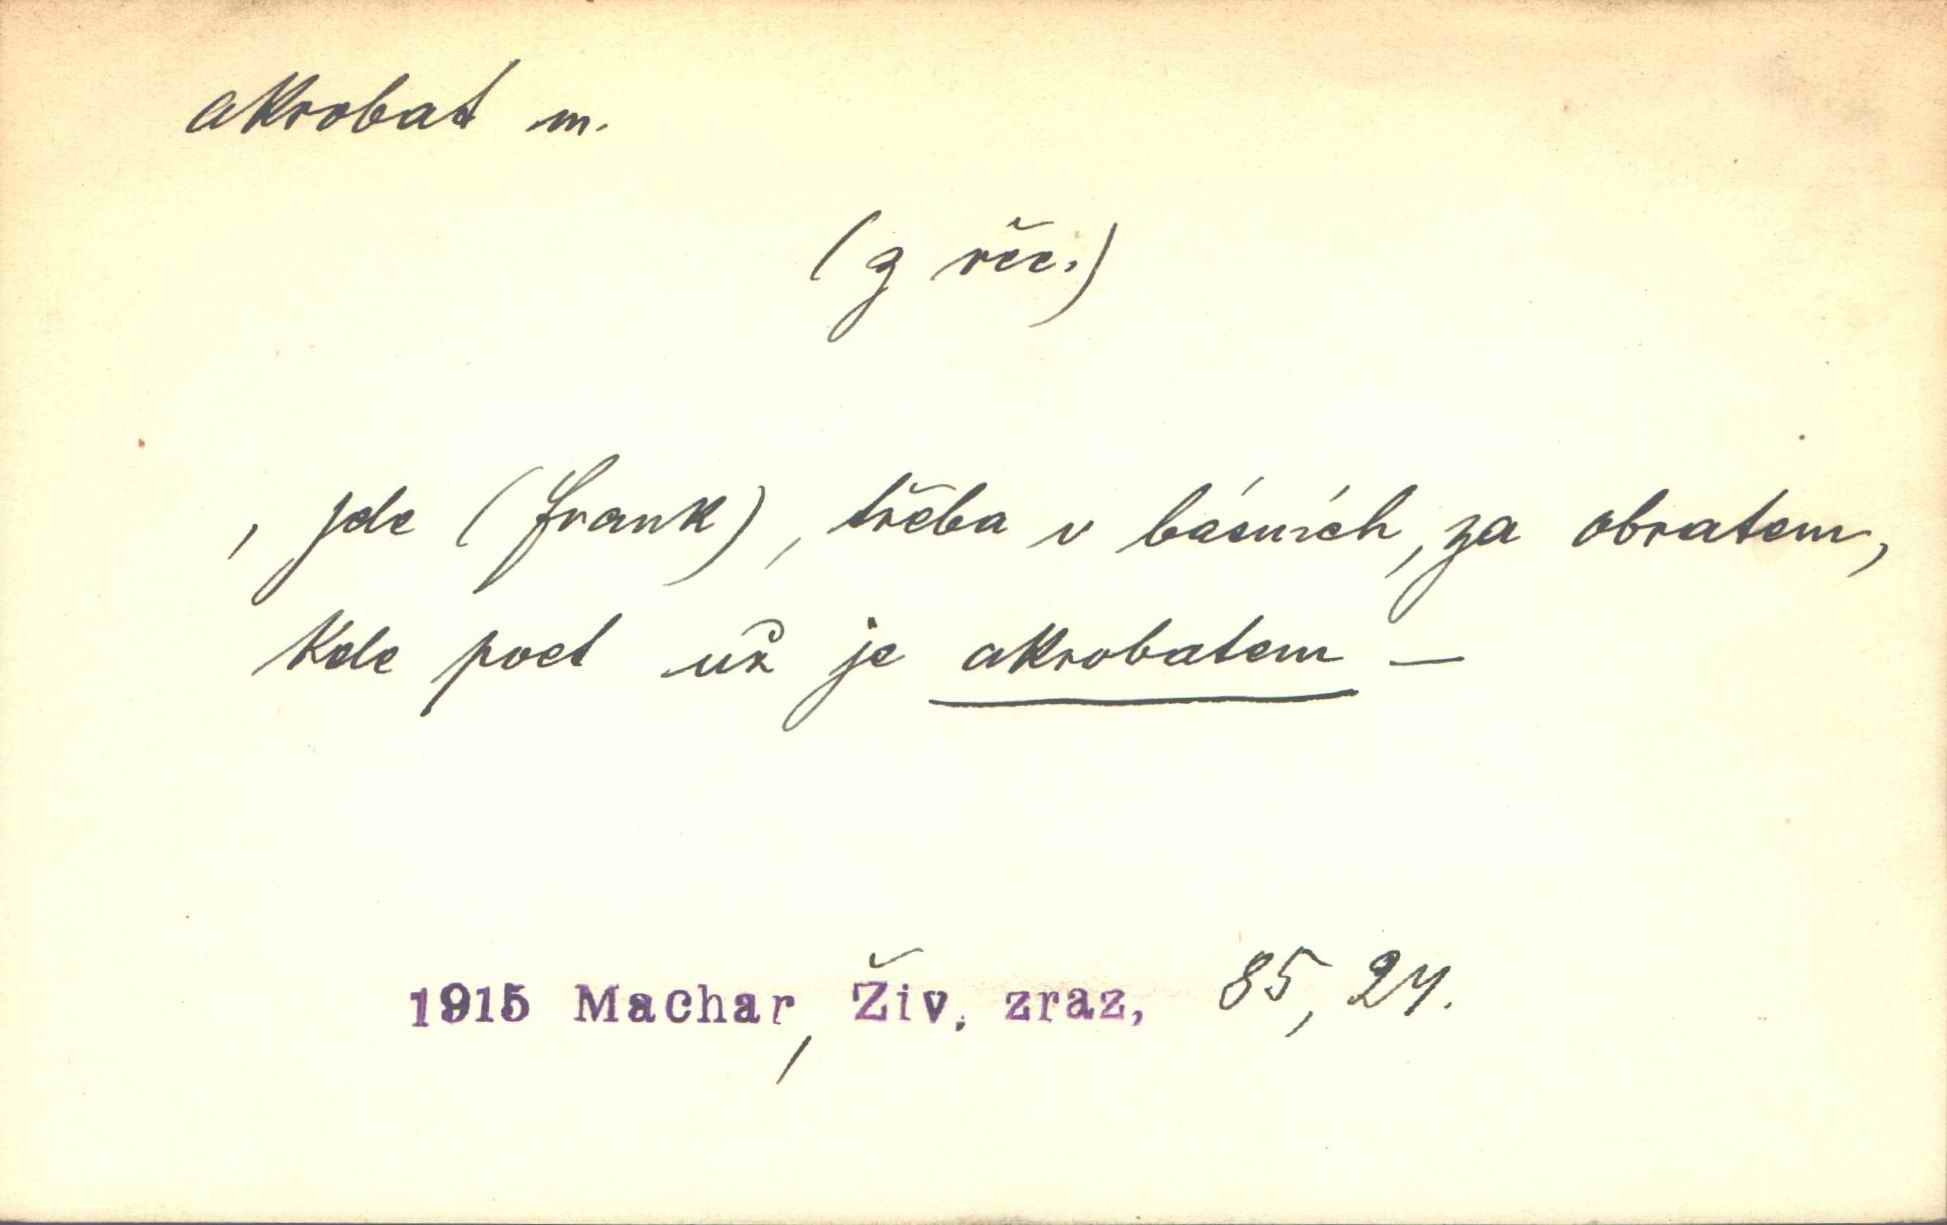 akrobat m.
(z řec.)
, jde (frank), třeba v básních, za obratem,
kde poet už je akrobatem —
1915 Machar, Živ. zraz, 85, 24.